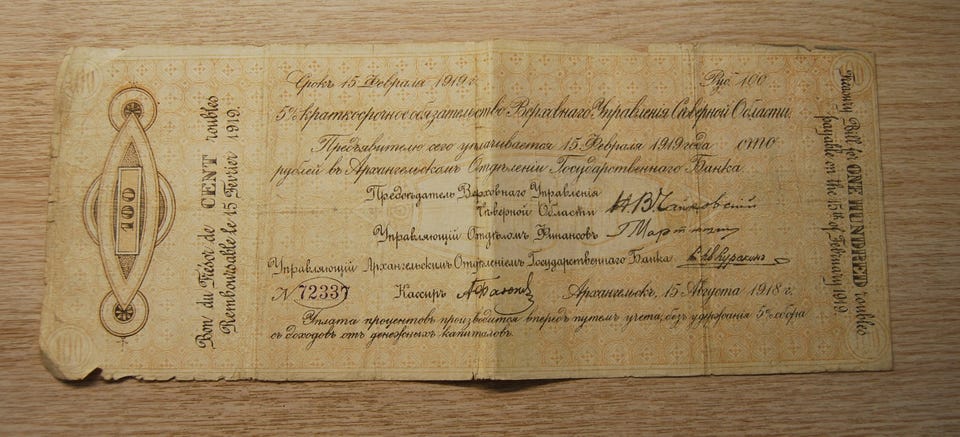 100
Bon du Trésor de CENT roubles
Remboursable le 15 Février 1919.
Срокъ 15 Февраля 1919 г.
Руб. 100
5% краткосрочное обязательство Верховнаго Управленія Сѣверной Области.
Предъявителю сего уплачивается 15 Февраля 1919 года сто
рублей въ Архангельскомъ Отдѣленіи Государственнаго Банка.
Предсѣдатель Верховнаго Управленія
Сѣверной Области Н В Чайковскій
Управляющій Отдѣломъ Финансовъ Г Мартюшинъ
Управляющій Архангельскимъ Отдѣленіемъ Государственнаго Банка
№ 72337
Кассиръ
Архангельскъ, 15 Августа 1918 г.
Уплата процентовъ производится впередъ путемъ учета, безъ удержанія 5% сбора
съ доходовъ отъ денежныхъ капиталовъ.
Treasury Bill for ONE HUNDRED roubles
payable on the 15th of February 1919.